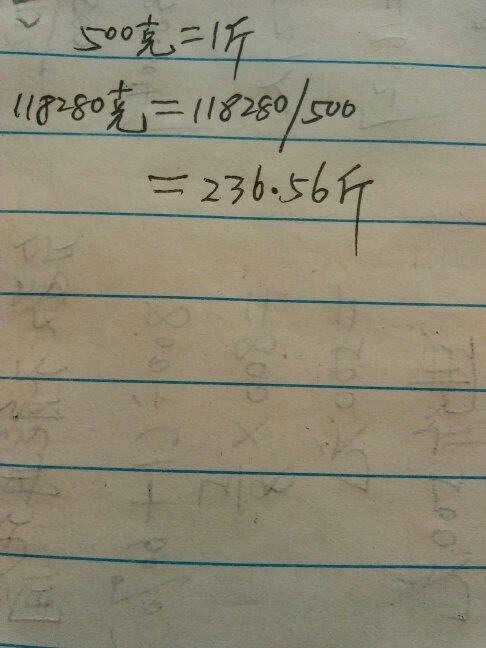 500克=1斤
118280克=118280/500
=236.56斤